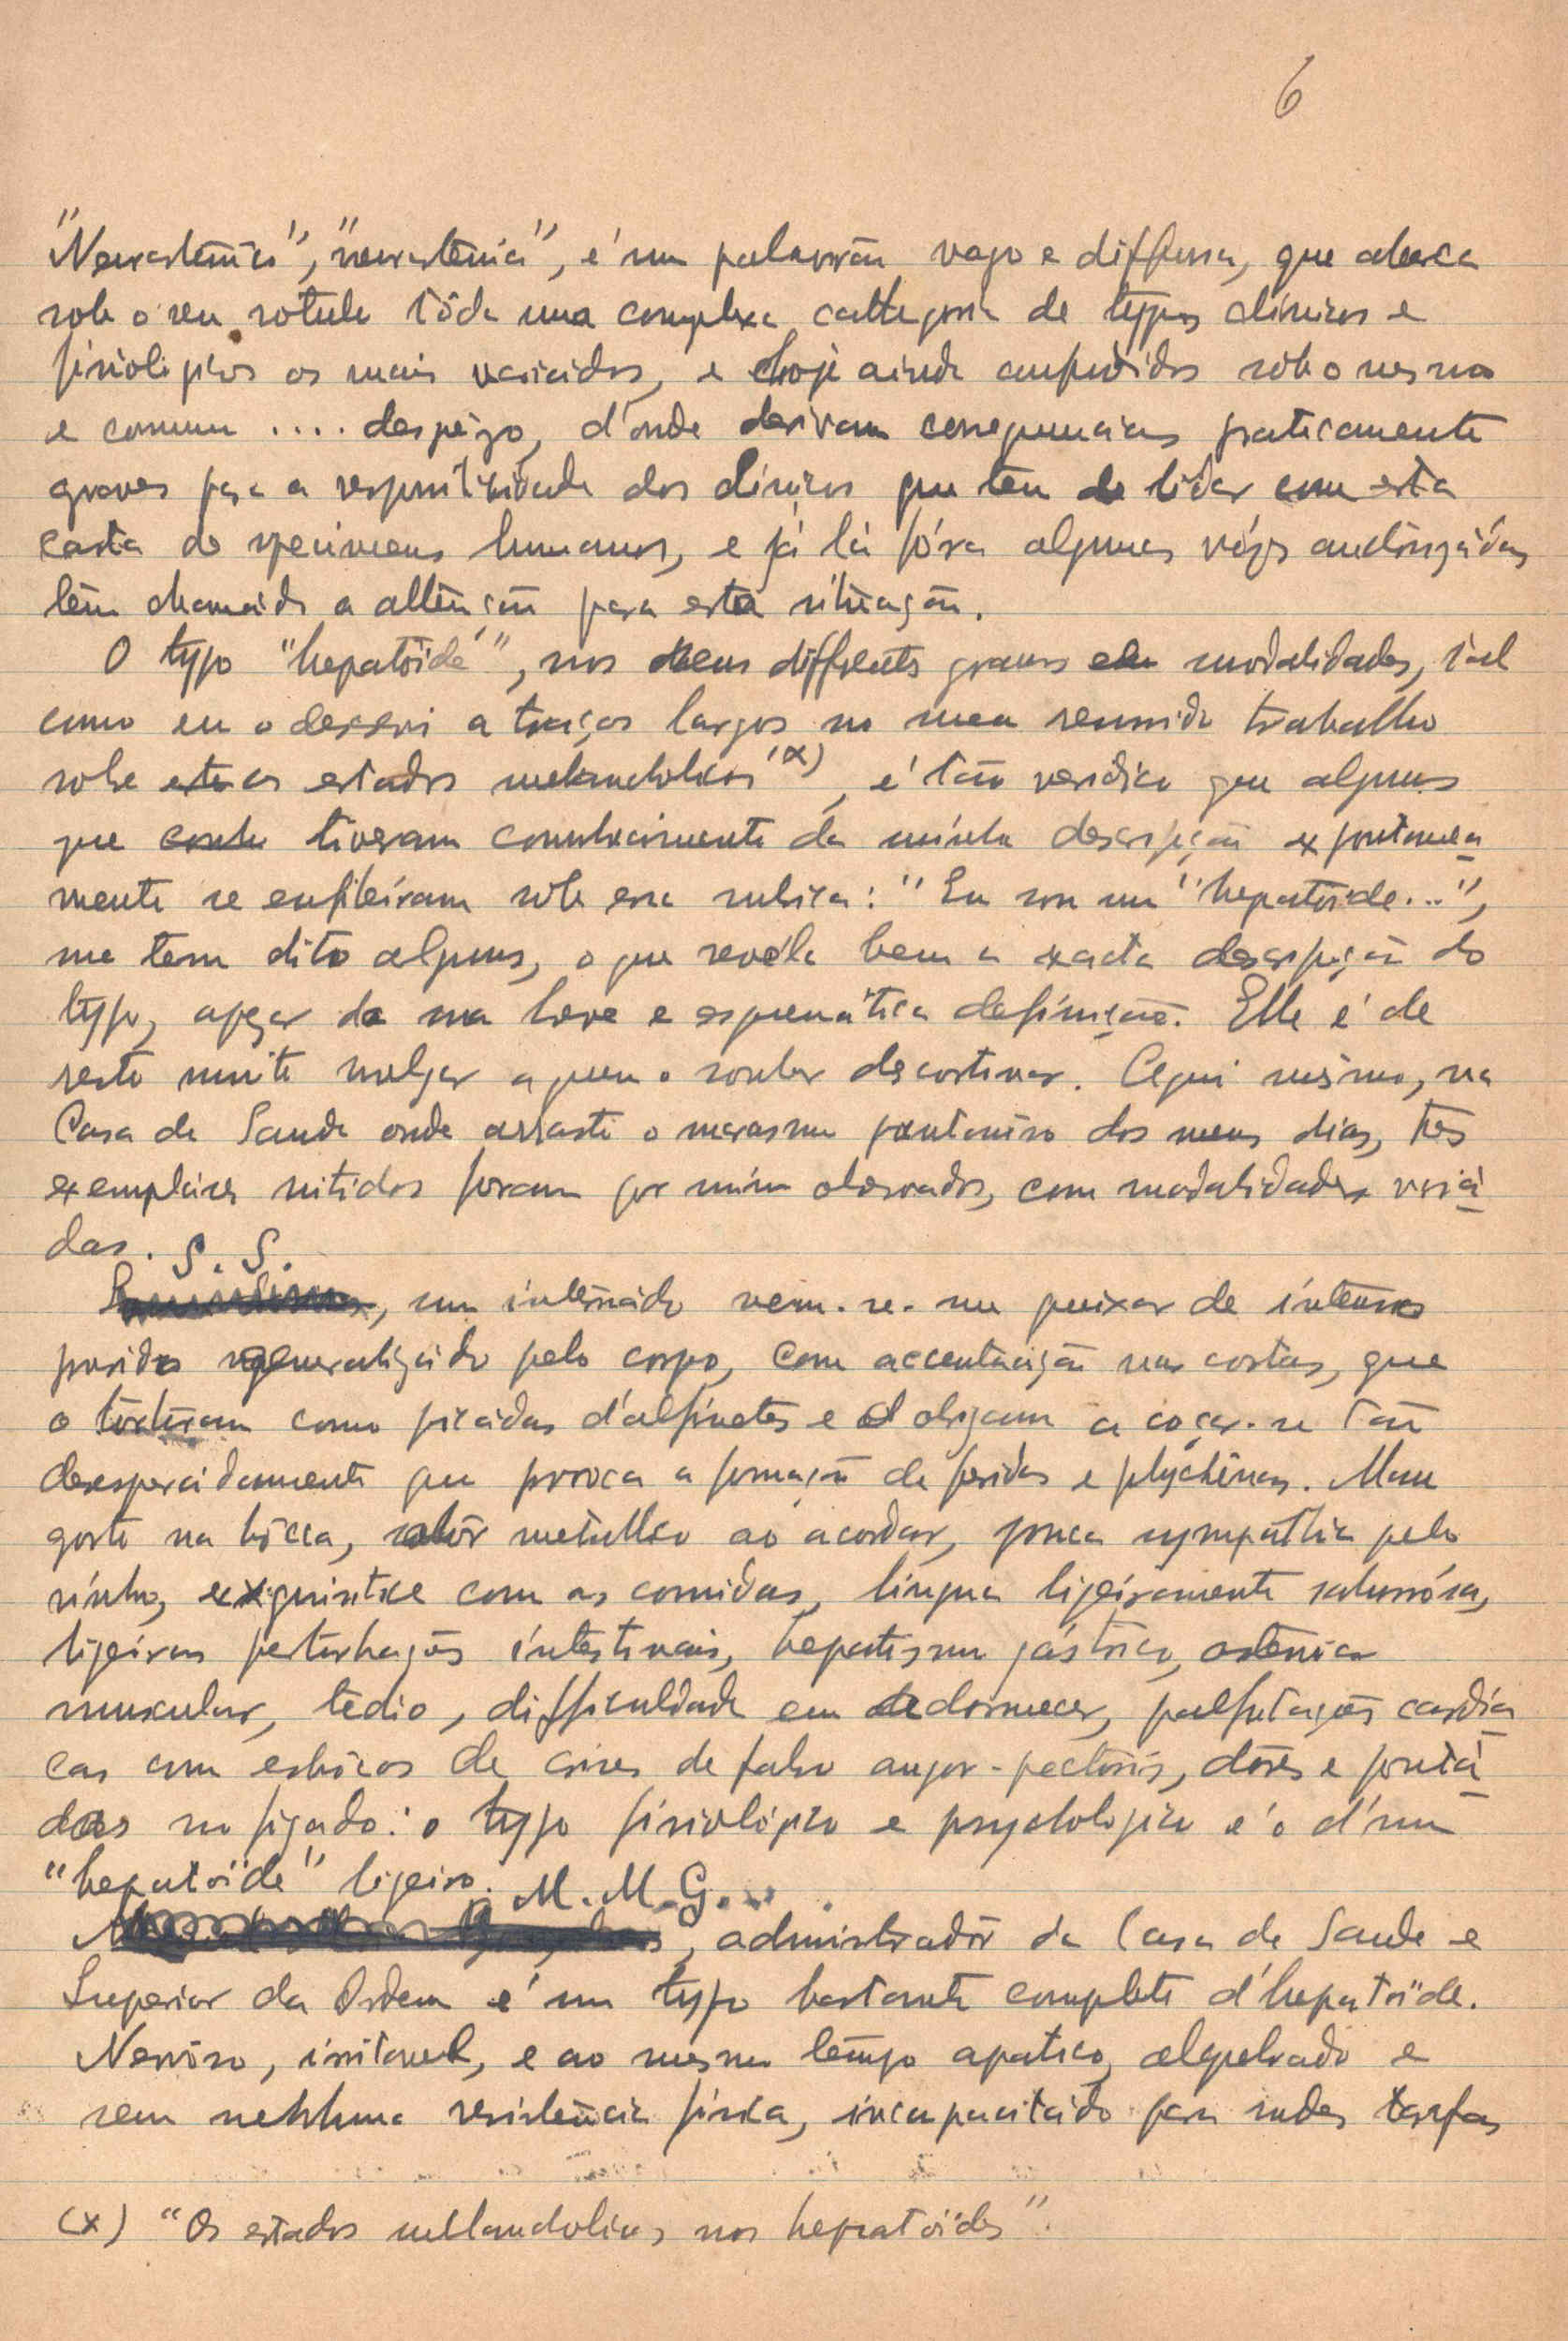 6
"Neurastenico", "neurastenia", é um palavrão vago e diffuso, que abarca
sob o seu rotulo tôda uma complexa cathegoria de typos clinicos e
fisiologicos os mais variados, e hoje ainda confundidos sob o mesmo
e commum .... despêzo, d'onde derivam consequencias praticamente
graves para a responsabilidade dos clinicos que têm de lidar com esta
casta de specimens humanos, e já lá fóra algumas vózes auctorizádas
têm chamado a attenção para esta situação.
O typo "hepatoïde", nos seus differentes graus e modalidades, tal
como eu o descrevi a traços largos no meu resumido trabalho
sobre os estados melancholicos (x), é tão veridico que alguns
que tiveram conhecimento da minha descripção expontanea
mente se enfileiram sob essa rubrica: "Eu sou um "hepatoïde...",
me tem dito alguns, o que revéla bem a exacta descripção do
typo, apezar da sua breve e esquemática definição. Elle é de
resto muito vulgar a quem o souber descortinar. Aqui mesmo, na
Casa de Saude onde arrasto o marasmo pantanoso dos meus dias, três
exemplares nitidos foram por mim observados, com modalidades variá
das. S. S.
, um internádo vem-se-me queixar de intenso
prurido generalizádo pelo corpo, com accentuação nas costas, que
o torturam como picádas d'alfinetes e o obrigam a coçar-se tão
desesperádamente que provoca a formação de feridas e phlyctênas. Mau
gosto na bôcca, sabôr metallico ao acordar, pouca sympathia pelo
vinho, exquisitice com as comidas, lingua ligeiramente saburrósa,
ligeiras perturbações intestinais, hepatismo gástrico, astenia
muscular, tedio, difficuldade em adormecer, palpitações cardía
cas com esbôços de crises de falso angor-pectoris, dôres e pontá
das no figado: o typo fisiológico e psychologico é o d'um
"hepatoïde" ligeiro. M. M. G...
, administradôr da Casa de Saude e
Superior da Ordem é um typo bastante completo d'hepatoïde.
Nervoso, irritavel, e ao mesmo tempo apatico, alquebrado e
sem nenhuma resistência física, incapacitádo para rudes tarefas
(x) "Os estados mellancholicos nos hepatoïdes".